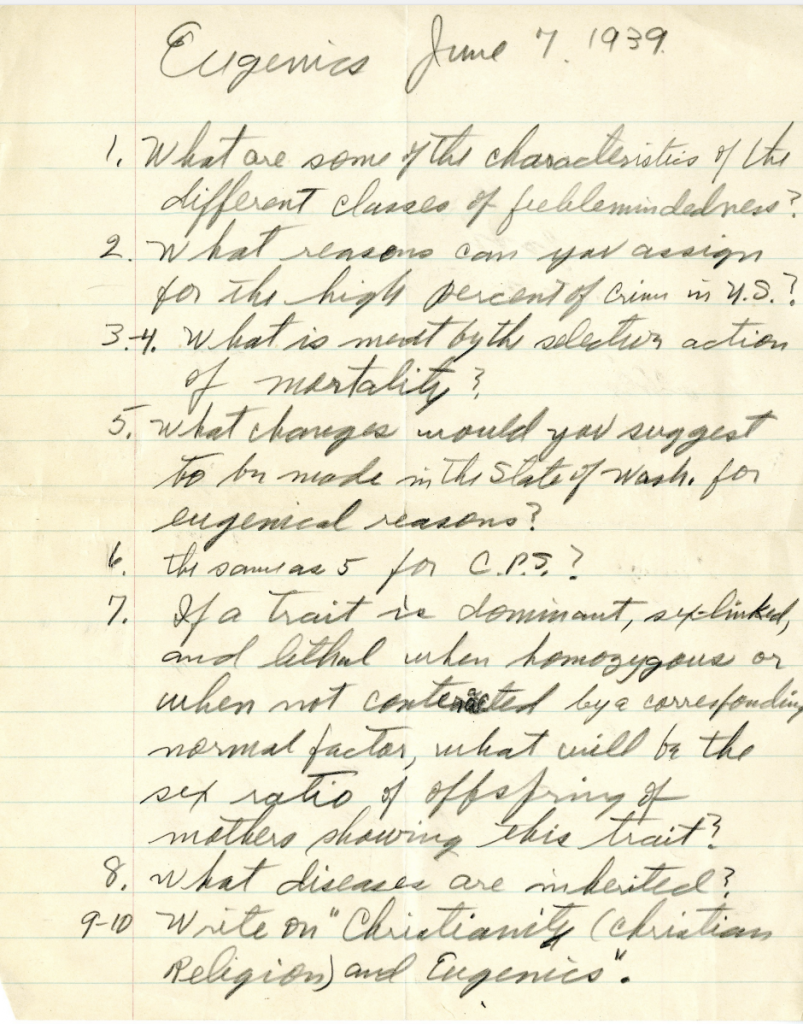 Eugenics June 7. 1939.
1. What are some of the characteristics of the
different classes of feeblemindedness?
2. What reasons can you assign
for the high percent of crime in U.S.?
3.-4. What is meant by the selective action
of mortality?
5. What changes would you suggest
to be made in the State of Wash. for
eugenical reasons?
6. the same as 5 for C.P.S.?
7. If a trait is dominant, sex-linked,
and lethal when homozygous or
when not by a corresponding
normal factor, what will be the
sex ratio of offspring of
mothers showing this trait?
8. What diseases are inherited?
9-10 Write on "Christianity (Christian
Religion) and Eugenics".